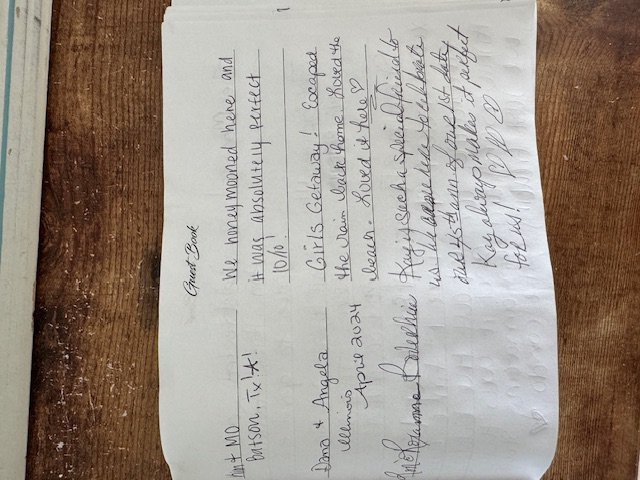 Guest Book
We honeymooned here and
it was absolutely perfect
10/10!
+ MO
TX!
Dana + Angela
Illinois
April 2024
Girls Getaway! Escaped
the rain back home. Loved the
beach. Loved it here ♡
such a special friend to
us. We here to celebrate
our anniv of our 1st date
Kay always makes it perfect
for us! ♡♡♡